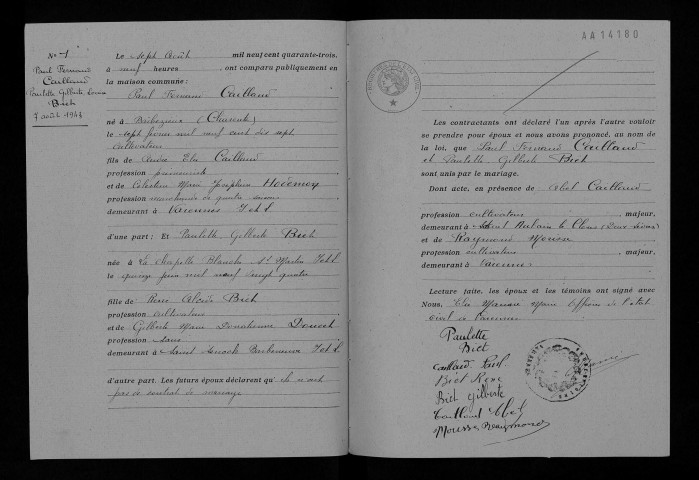 N° 7
Paul Fernand
Cailland
Paulette Gilberte Louise
Biet
7 août 1943
Le sept Août mil neuf cent quarante-trois,
à neuf heures, ont comparu publiquement en
la maison commune:
Paul Fernand Cailland
né à Barbezieux (Charente)
le sept février mil neuf cent dix sept
cultivateur
fils de Elie Cailland
profession
et de Célestine Marie Joséphine
profession
demeurant à Varennes I et L
d'une part: Et Paulette Gilberte Biet
née à La Chapelle Blanche St Martin I et L
le quinze juin mil neuf vingt quatre
fille de René Biet
profession cultivateur
et de Gilberte Marie Donatienne Doucet
profession sans
demeurant à Saint I et L
d'autre part. Les futurs époux déclarent qu'il n'ont
pas de contrat de mariage
AA 14180
Les contractants ont déclaré l'un après l'autre vouloir
se prendre pour époux et nous avons prononcé, au nom de
la loi, que Paul Fernand Cailland
et Paulette Gilberte Biet
sont unis par le mariage.
Dont acte, en présence de Abel Cailland
profession cultivateur majeur,
demeurant à (Deux Sèvres)
et de Raymond
profession cultivateur majeur,
demeurant à Varennes
Lecture faite, les époux et les témoins ont signé avec
Nous, Maire Officier de l'état
civil de Varennes
Paulette
Biet
Cailland Paul
Biet René
Biet Gilberte
Cailland Abel
Raymond